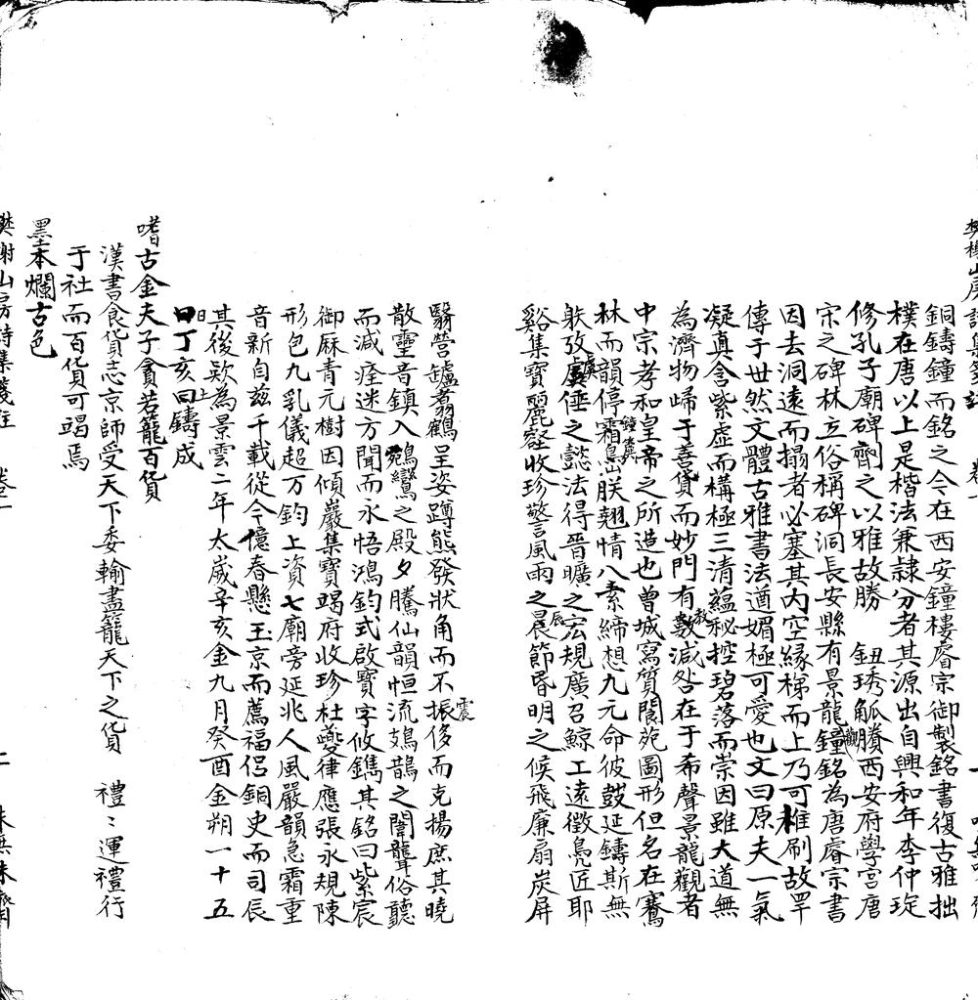 銅鑄鐘而銘之今在西安鐘樓睿宗御製銘書復古雅拙
樸在唐以上是楷法兼隸分者其源出自興和年李仲琁
修孔子廟碑劑之以雅故勝　鈕琇觚賸西安府學宮唐
宋之碑林立俗稱碑洞長安縣有景龍鐘銘為唐睿宗書
因去洞遠而搨者必塞其内空縁梯而上乃可椎刷故罕
傳于世然文體古雅書法遒媚極可愛也文曰原夫一氣
凝真含紫虛而構極三清藴秘控碧落而崇因雖大道無
為濟物歸于善貸而妙門有數減咎在于希聲景龍觀者
中宗孝和皇帝之所造也曾城寫質閬苑圖形但名在騫
林而韻停霜鐘朕翹情八素締想九元命彼鼓延鑄斯無
躰攷虞倕之懿法得晉曠之宏規廣召鯨工遠徵鳧匠耶
谿集寶麗壑收珍警風雨之晨節昏明之候飛廉扇炭屏
翳營罏翥鶴呈姿蹲熊發狀角而不震侈而克揚庶其曉
散靈音鎮入鵷鸞之殿夕騰仙韻恒流鳷鵲之闈聾俗聽
而減痊迷方聞而永悟鴻鈞式啟寶字攸鐫其銘曰紫宸
御厤青元樹因傾巖集寶竭府收珍杜夔律應張永規陳
形包九乳儀超万鈞上資七廟旁延兆人風嚴韻急霜重
音新自兹千載從今億春懸玉京而薦福侶銅史而司辰
其後欵為景雲二年太歲辛亥金九月癸酉金朔一十五
日丁亥土鑄成
嗜古金夫子貪若籠百貨
漢書食貨志京師受天下委輸盡籠天下之貨　禮〻運禮行
于社而百貨可竭焉
墨本爛古色
樊榭山房詩集箋註